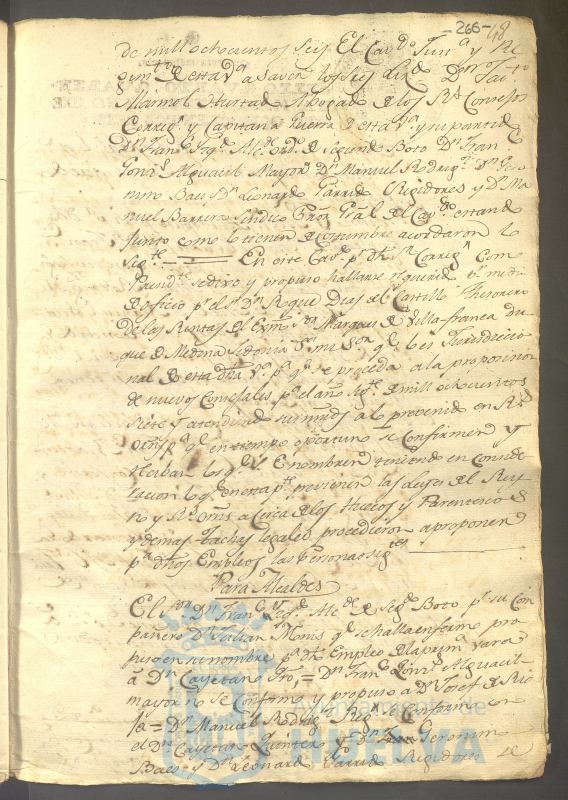 266-48
de mill ochocientos seis El Cav.do Just.a y Re
gim.to de esta V.a a saver los S.res Liz.do D.n
Marmol Hurtado Abogado de los R.s Consejos
Correg.r y Capitan a Guerra de esta V.a y su partido
D.n Fran.co Alc.de ord.o de segundo Boto D.n Fran.co
Gonz.s Alguacil Mayor D.n Manuel Rodrig.z D.n Gero
nimo Baes y D.n Leonardo Garrido Regidores y D.n Ma
nuel Barrera Sindico Pror Gral del Cav.do estando
junto como lo tienen de costumbre acordaron lo
sig.te En este Cav.do p.r dho S.r Correg.r como
Presid.te se dixo y propuso hallarse requerido p.r medio
de oficio p.r el S.r D.n Roque Dias del Castillo Thesorero
de las Rentas del Exmo S.or Marques de Villafranca du
que de Medina Sidonia mi S.or q.e lo es Jurisdiccio
nal de esta dha V.a p.a q.e se proceda a la proposicion
de nuevos Consejales p.a el año sig.te de mill ochocientos
siete y atendiendo sus mrds a lo prevenido en R.s
orn.s p.a q.e en tiempo oportuno se confirmen y
resiban los q.e se nombren teniendo en conside
racion lo q.e en esta p.te previenen las Leyes del Rey
no y R.s orns acerca de los Huecos y Parentesco
y demas tachas legales procedieron a proponer
p.a dhos Empleos las personas sig.tes
Para Alcaldes
El S.or D.n Fran.co Alc.de de seg.do Boto p.r su Com
pañero D.n Julian Monis q.e se halla enfermo pro
puso en su nombre p.a dho Empleo de la prim.a vara
a D.n Cayetano = D.n Fran.co Gonz.s Alguacil
mayor no se conformo y propuso a D.n Josef de Rio
ja = D.n Manuel Rodrig.z Reg.r se conformo con
el D.n Cayetano Quintero y D.n Geronimo
Baes y D.n Leonardo Garrido Regidores se
Ayuntamiento de
HUELVA